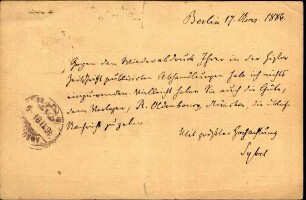 Berlin 17. Nov. 1886.
Gegen den Wiederabdruck Ihrer in der Histor.
Zeitschrift publicirten Abhandlungen habe ich nichts
einzuwenden. Vielleicht haben Sie auch die Güte,
dem Verleger, R. Oldenbourg, München, die übliche
Nachricht zu geben.
Mit größter Hochachtung
Sybel